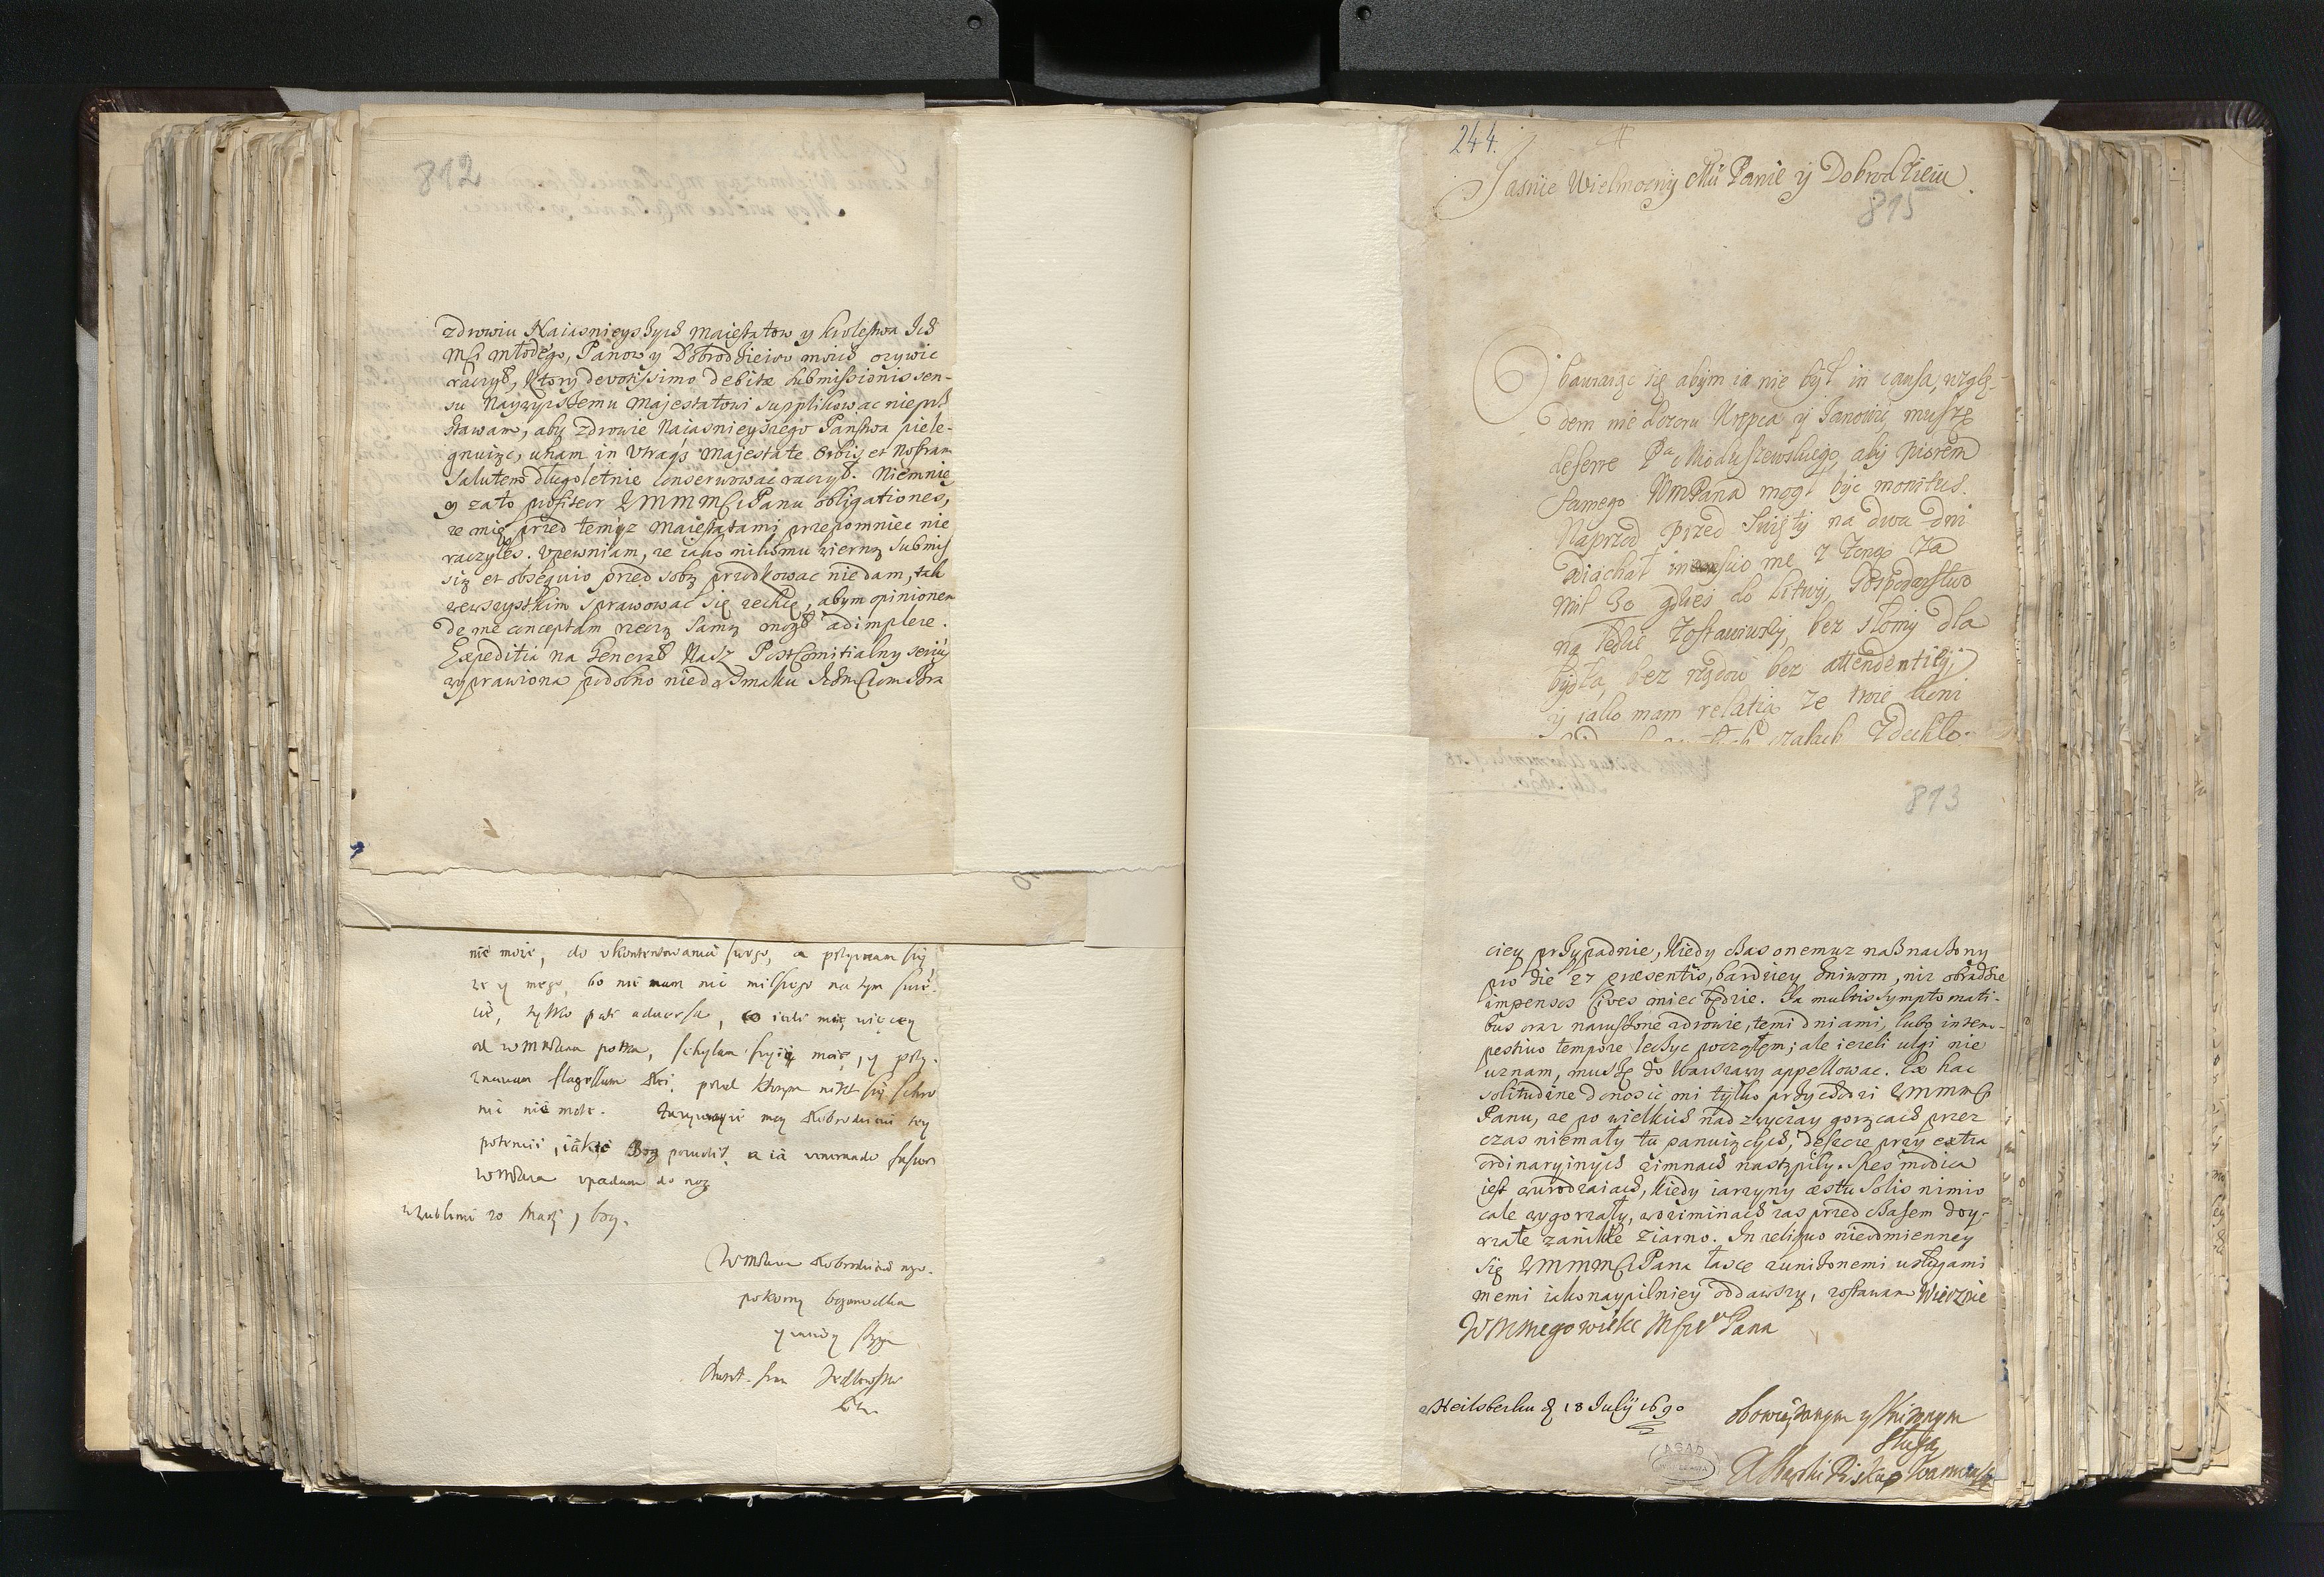 812
zdrowiu Naiasnieyszych Maiestatow y krolestwa Ich
Mći młodego, Panow y Dobrodzieiow moich ozywic
raczył, ktory devotissimo debitæ submissionis sen-
su Naywyzszemu Majestatowi supplikowac nieprze
stawam, aby zdrowie Naiasnieyszego Panstwa piele-
gnuiąc, unam in utraqs Majestate Orbis et Nostram
Salutem długoletnie conserwowac raczył. Niemnie
y zato profiteor WMMMći Panu obligationes,
ze mię przed temisz Maiestatami przepomniec nie
raczyłes. Upewniam, ze iako nikomu wierną submis
sią et obsequio przed sobą przodkowac niedam, tak
wewszystkim sprawowac się zechcę, abym opinionem
de me conceptam rzeczą samą mogł adimplere.
Expeditia na Generał Nasz PostComitialny serius
wyprawiona podobno nie do smaku
nie moie, do ukontentowania swego, a przyznam się
ze y mego, bo nie mam nic milszego na tym swie-
cie, tylko pati adversa, co ieśli mię więcey
od WMPana potka, schylam szyię moię, y przy-
znawam flagellum Dei, przed ktorym nikt się schro
nic nie może. moy Dobrodzieiu tey
potencii, iakiè Bog pozwolił, a ia
WMPana upadam do nog
20 Maij, 689.
WMPana Dobrodzieia mego
pokorny bogomodlca
y sługa
244.
Jasnie Wielmozny Mći Panie y Dobrodzieiu.
815
Obawiaiąc się abym ia nie był in causa, wzglę-
dem nie dozoru Krępca y Janowa, muszę
deferre Pa Modliszewskiego, aby piorem
samego WmPana mogł byc monitus.
Naprzod przed Swięty na dwa dni
wiachał inscio me z tego za
mil 30 gdzies do Litwy, Gospodarstwo
na ledzie zostawiwszy, bez słomy dla
bydła, bez rządow bez attendentiey,
y iako mam relatią ze troie koni
zdechło.
813
ciey przypadnie, kiedy czas onemuz naznaczony
pro die 27 præsentis, bardziey zniwom, niz obradzie
impensos cives miec będzie. Ja multis symptomati-
bus oraz naruszone zdrowie, temi dniami, lubo intem-
pestivo tempore leczyc począłem; ale iezeli ulgi nie
uznam, muszę do Warszawy appellowac. Ex hac
solitudine donosic mi tylko przychodzi WMMMći
Panu, ze po wielkich nad zwyczay gorącach przez
czas niemały tu panuiących, deszcze przy extra
ordinaryinych zimnach nastąpiły. Spes modica
iest w urodzaiach, kiedy iarzyny æstu Solis nimio
cale wygorzały, w oziminach zas przed czasem doy-
rzałe zanikłe ziarno. In reliquo nieodmienney
się WMMMći Pana łasce z unizonemi usługami
memi iako naypilniey oddawszy, zostawam Wiecznie
WMmego wielce Mscio Pana
Heilsberku d 18 July 1690
obowiązanym y powinnym
sługą
Zbąski Biskup Warminski
AGAD